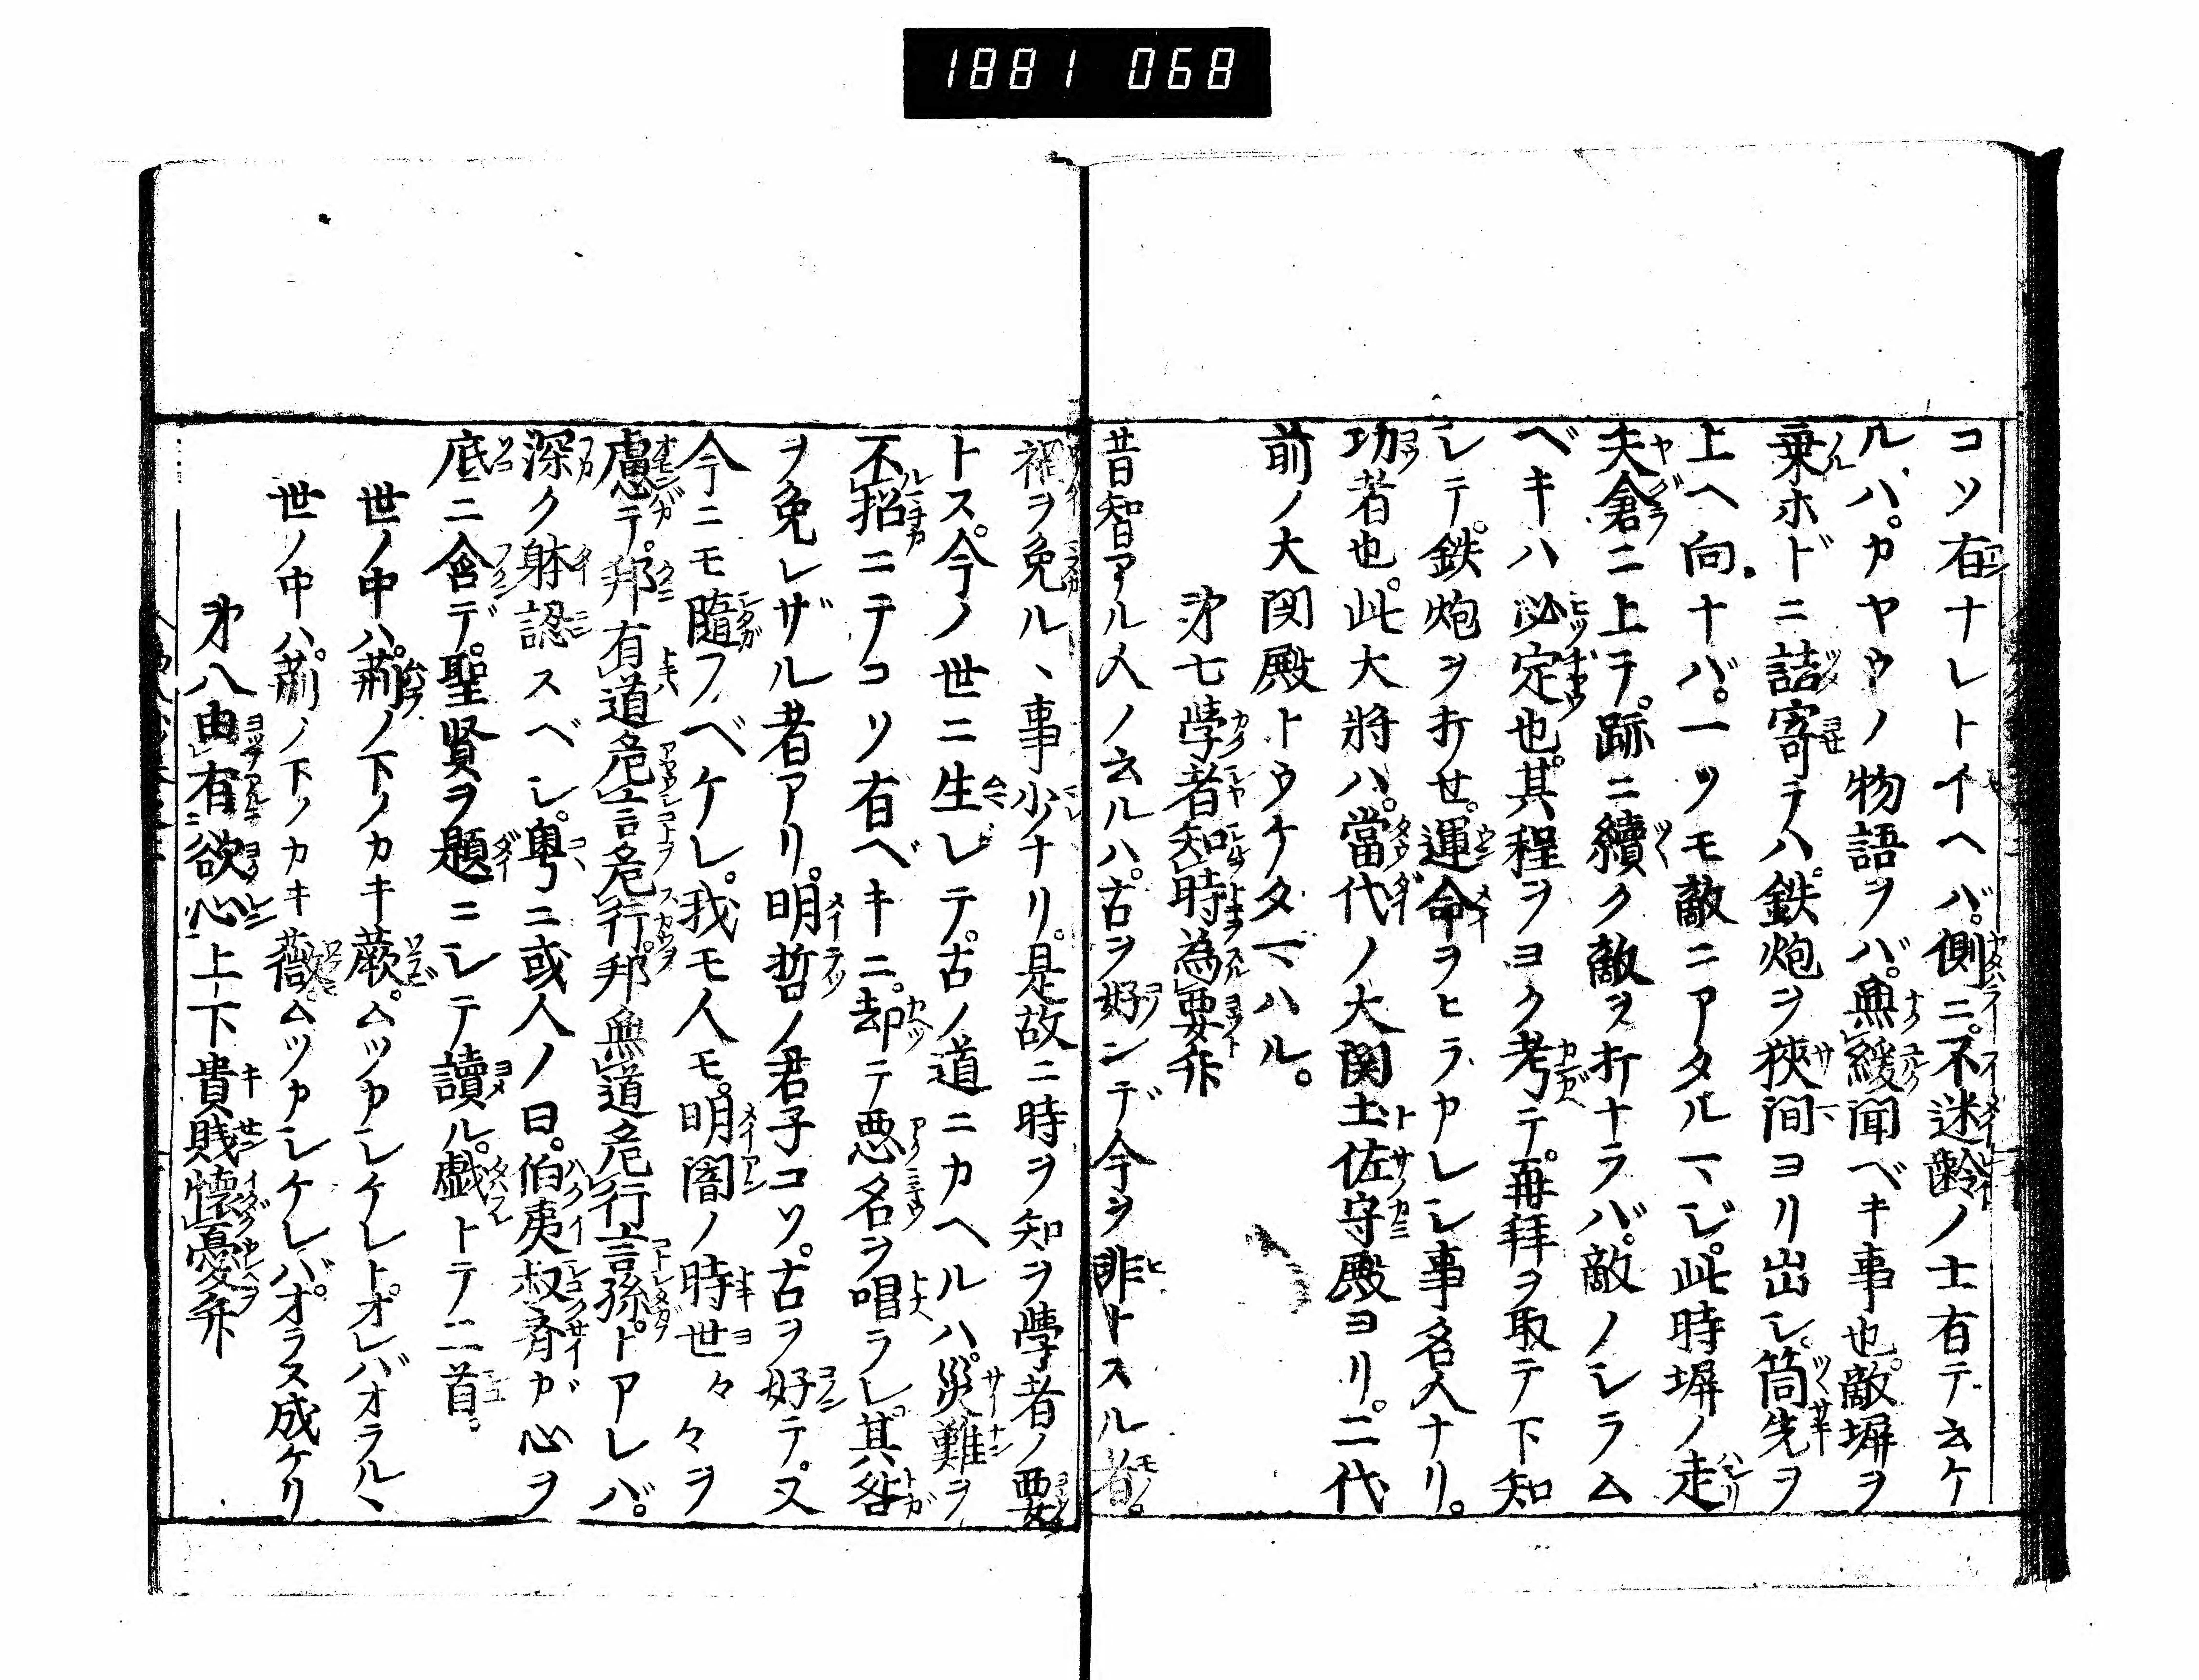 1881 068
コソ有ナレトイヘバ。側ニ。不迷齢ノ士有テ云ケ
ルハ。カヤウノ物語ヲバ。無緩聞ベキ事也。敵塀ヲ
乗ホドニ詰寄テハ。鉄炮ヲ狭間ヨリ出シ。筒先ヲ
上ヘ向ナバ。一ツモ敵ニアタルマジ。此時塀ノ走
矢倉ニ上テ。跡ニ續ク敵ヲ打ナラバ。敵ノシラム
ベキハ必定也。其程ヲヨク考テ。再拜ヲ取テ下知
シテ。鉄炮ヲ打セ。運命ヲヒラカレシ事名人ナリ。
功者也。此大將ハ。當代ノ大関土佐守殿ヨリ。二代
前ノ大関殿トウケタマハル。
第七學者知時為要弁
昔智アル人ノ云ルハ。古ヲ好ンデ今ヲ非トスル者。
禍ヲ免ルヽ事少ナリ。是故ニ時ヲ知ヲ學者ノ要
トス。今ノ世ニ生レテ。古ノ道ニカヘルハ。災難ヲ
不招ニテコソ有ベキニ。却テ悪名ヲ唱ラレ。其咎
ヲ免レザル者アリ。明哲ノ君子コソ。古ヲ好テ。又
今ニモ隨フベケレ。我モ人モ。明闇ノ時世々々ヲ
慮テ。邦有道危言危行。邦無道危行言孫。トアレバ。
深ク躰認スベシ。粤ニ或人ノ曰。伯夷叔齊ガ心ヲ
底ニ含デ。聖賢ヲ題ニシテ讀ル。戯トテ二首。
世ノ中ハ。薪ノ下ノカキ蕨。ムツカシケレト。オレバオラルヽ
世ノ中ハ。薪ノ下ノカキ薇。ムツカシケレバ。オラス成ケリ
第八由有欲心上下貴賎懐憂弁